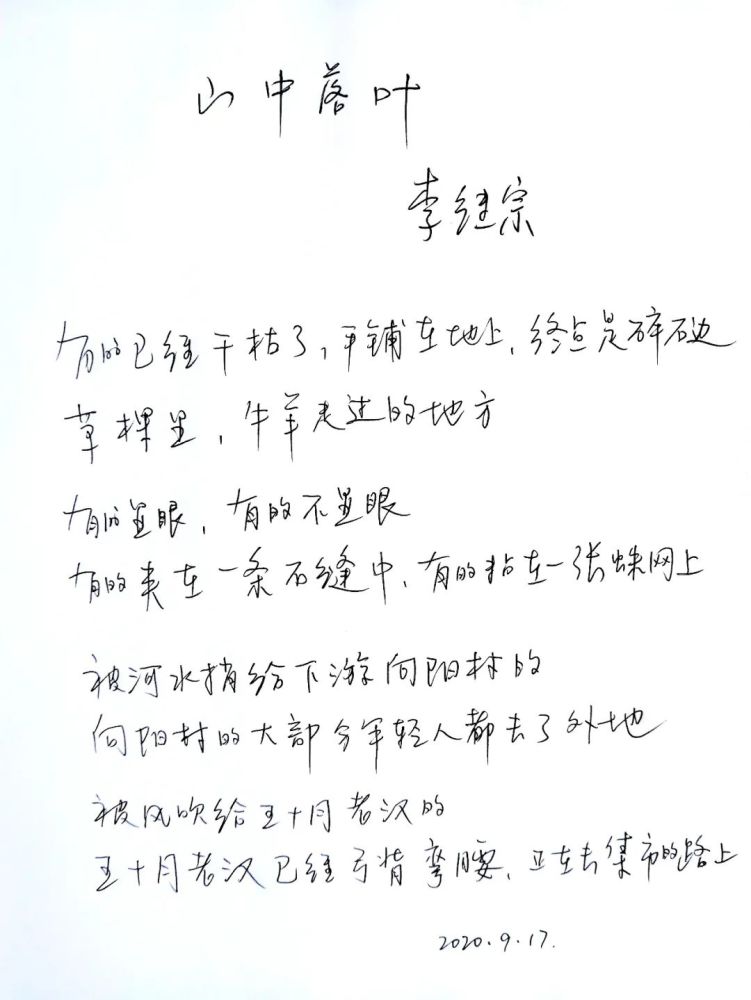 山中落叶
李继宗
有的已经干枯了，平铺在地上，终点是碎石边
草棵里，牛羊走过的地方
有的显眼，有的不显眼
有的夹在一条石缝中，有的粘在一张蛛网上
被河水捎给下游向阳村的
向阳村的大部分年轻人都去了外地
被风吹给王十月老汉的
王十月老汉已经弓背弯腰，正在去集市的路上
2020.9.17.